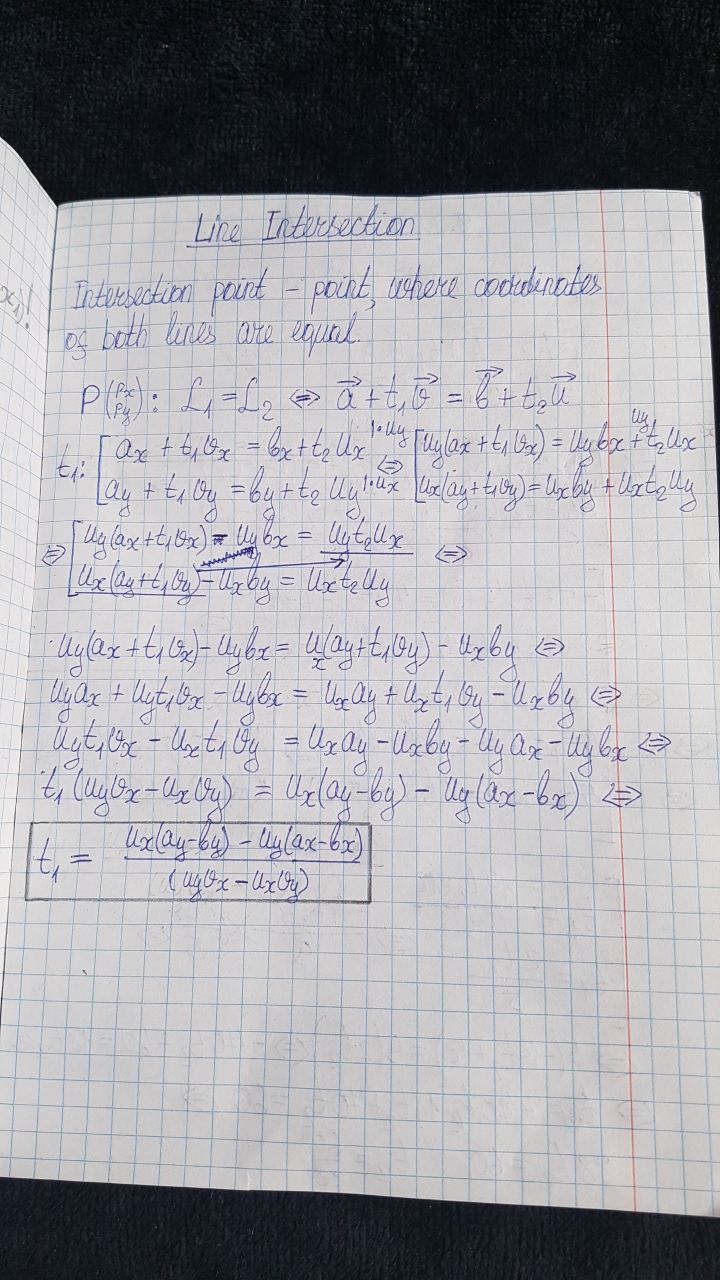 Line Intersection
Intersection point - point, where coordinates
of both lines are equal.
P(Px Py): L₁ = L₂ ⇔ a⃗ + t₁v⃗ = b⃗ + t₂u⃗
t₁: [ax + t₁vx = bx + t₂ux |·uy ⇔ [uy(ax + t₁vx) = uybx + uyt₂ux
[ay + t₁vy = by + t₂uy |·ux [ux(ay + t₁vy) = uxby + uxt₂uy
⇔ [uy(ax + t₁vx) - uybx = uyt₂ux ⇔
[ux(ay + t₁vy) - uxby = uxt₂uy
uy(ax + t₁vx) - uybx = ux(ay + t₁vy) - uxby ⇔
uyax + uyt₁vx - uybx = uxay + uxt₁vy - uxby ⇔
uyt₁vx - uxt₁vy = uxay - uxby - uyax - uybx ⇔
t₁(uyvx - uxvy) = ux(ay - by) - uy(ax - bx) ⇔
t₁ = ux(ay - by) - uy(ax - bx)
(uyvx - uxvy)